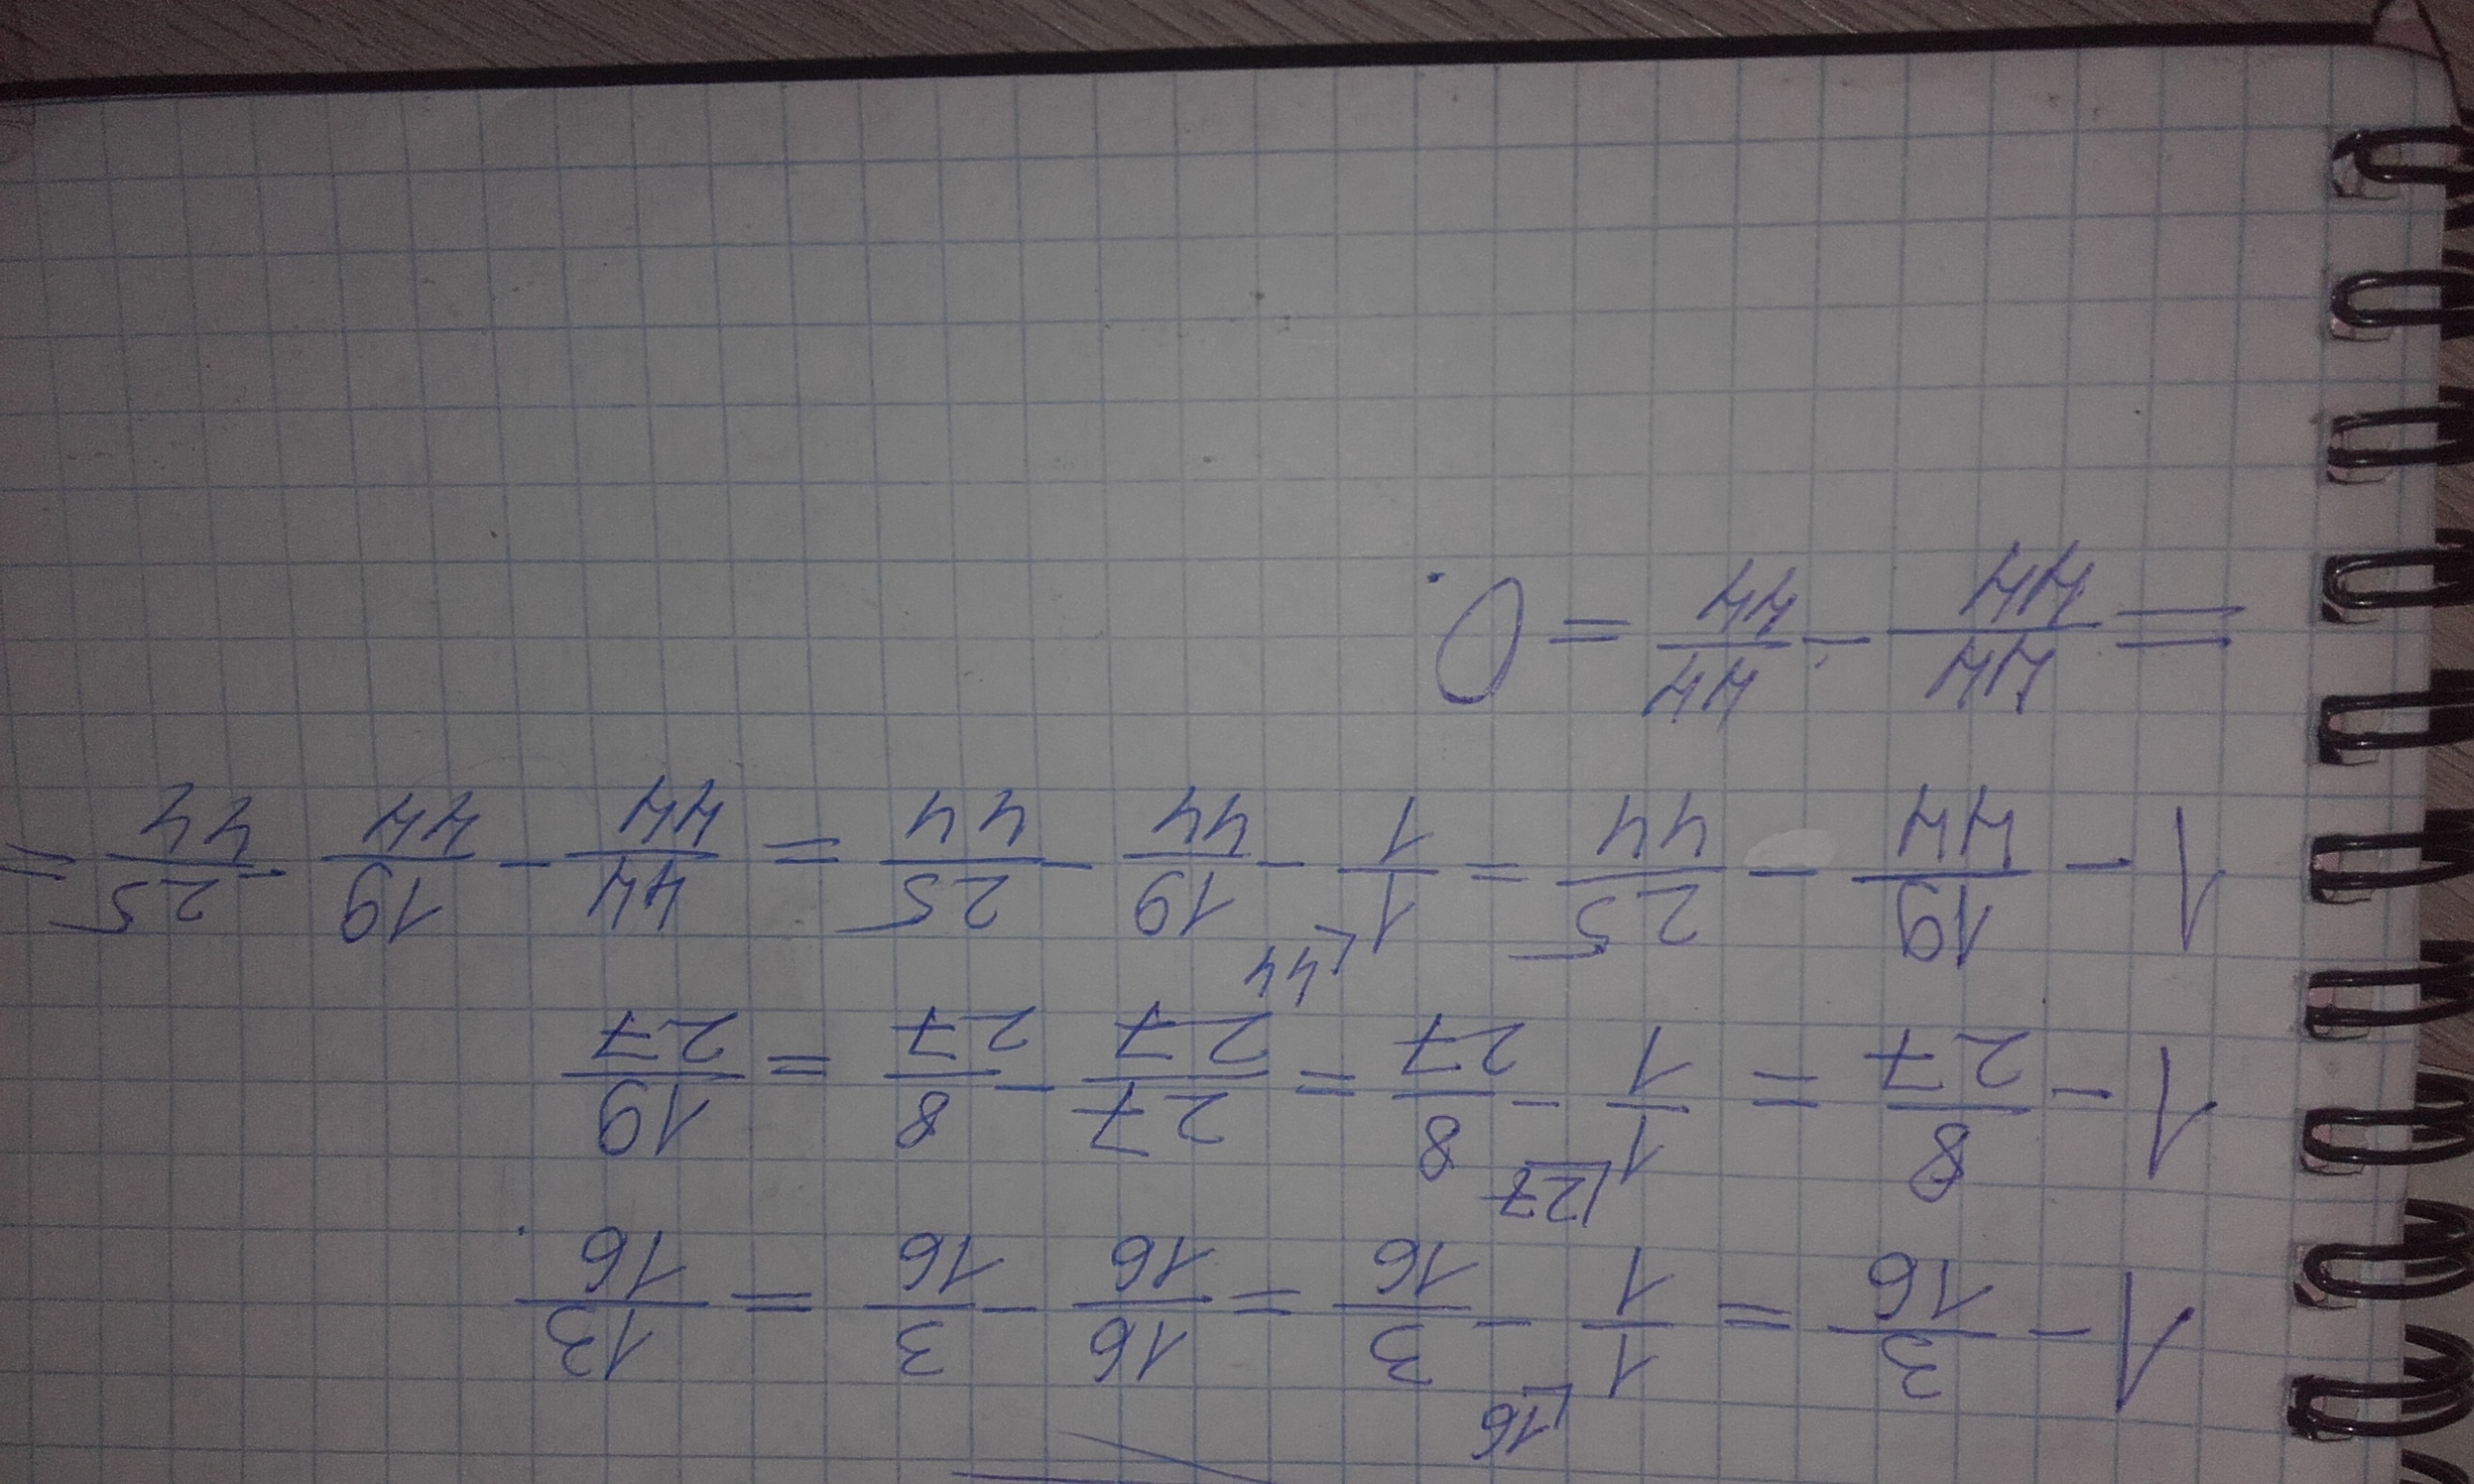 1 - 3/16 = 1/1 ⌈16 - 3/16 = 16/16 - 3/16 = 13/16.
1 - 8/27 = 1/1 ⌈27 - 8/27 = 27/27 - 8/27 = 19/27
1 - 19/44 - 25/44 = 1/1 ⌈44 - 19/44 - 25/44 = 44/44 - 19/44 - 25/44 =
= 44/44 - 44/44 = 0.